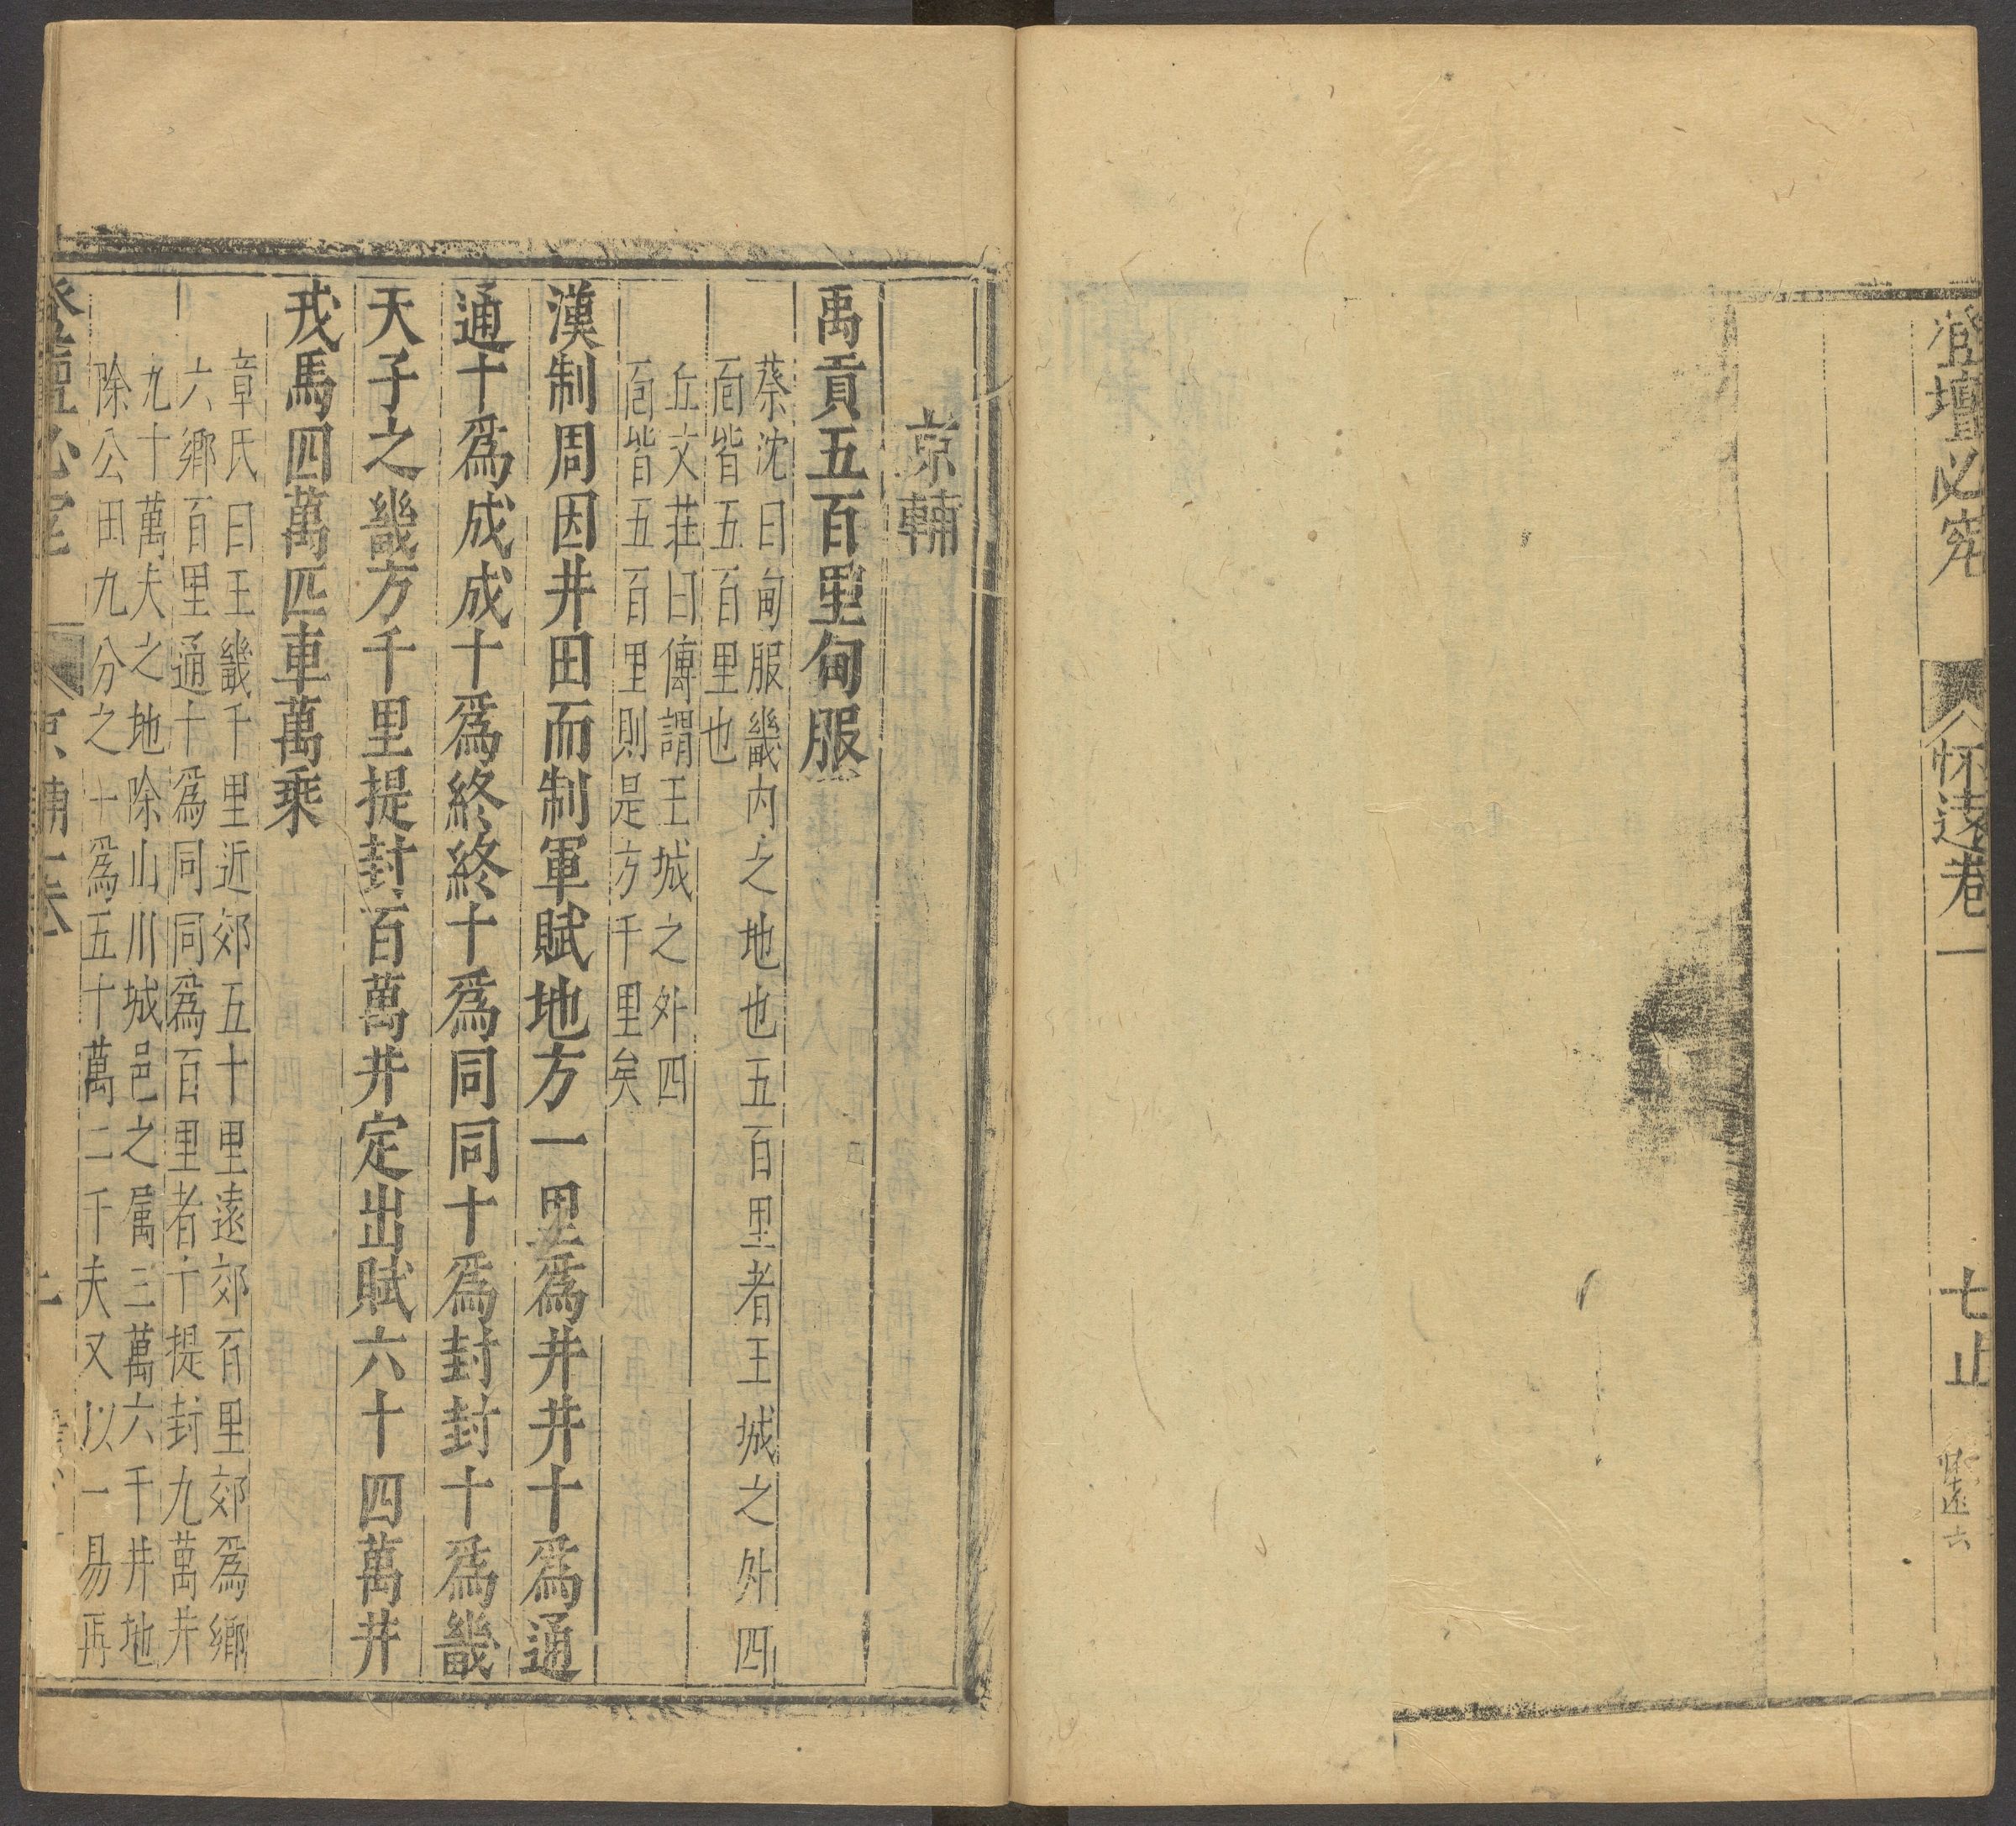 登壇必究
怀遠卷一
七止
怀遠六
京輔
禹貢五百里甸服
蔡沈曰甸服畿内之地也五百里者王城之外四
靣皆五百里也
丘文莊曰傳謂王城之外四
靣皆五百里則是方千里矣
漢制周因井田而制軍賦地方一里爲井井十爲通
通十爲成成十爲終終十爲同同十爲封封十爲畿
天子之畿方千里提封百萬井定出賦六十四萬井
戎馬四萬匹車萬乘
章氏曰王畿千里近郊五十里遠郊百里郊爲鄉
六鄉百里通十爲同同爲百里者十提封九萬井
九十萬夫之地除山川城邑之属三萬六千井地
除公田九分之十爲五十萬二千夫又以一易再
登壇必究
京輔一卷